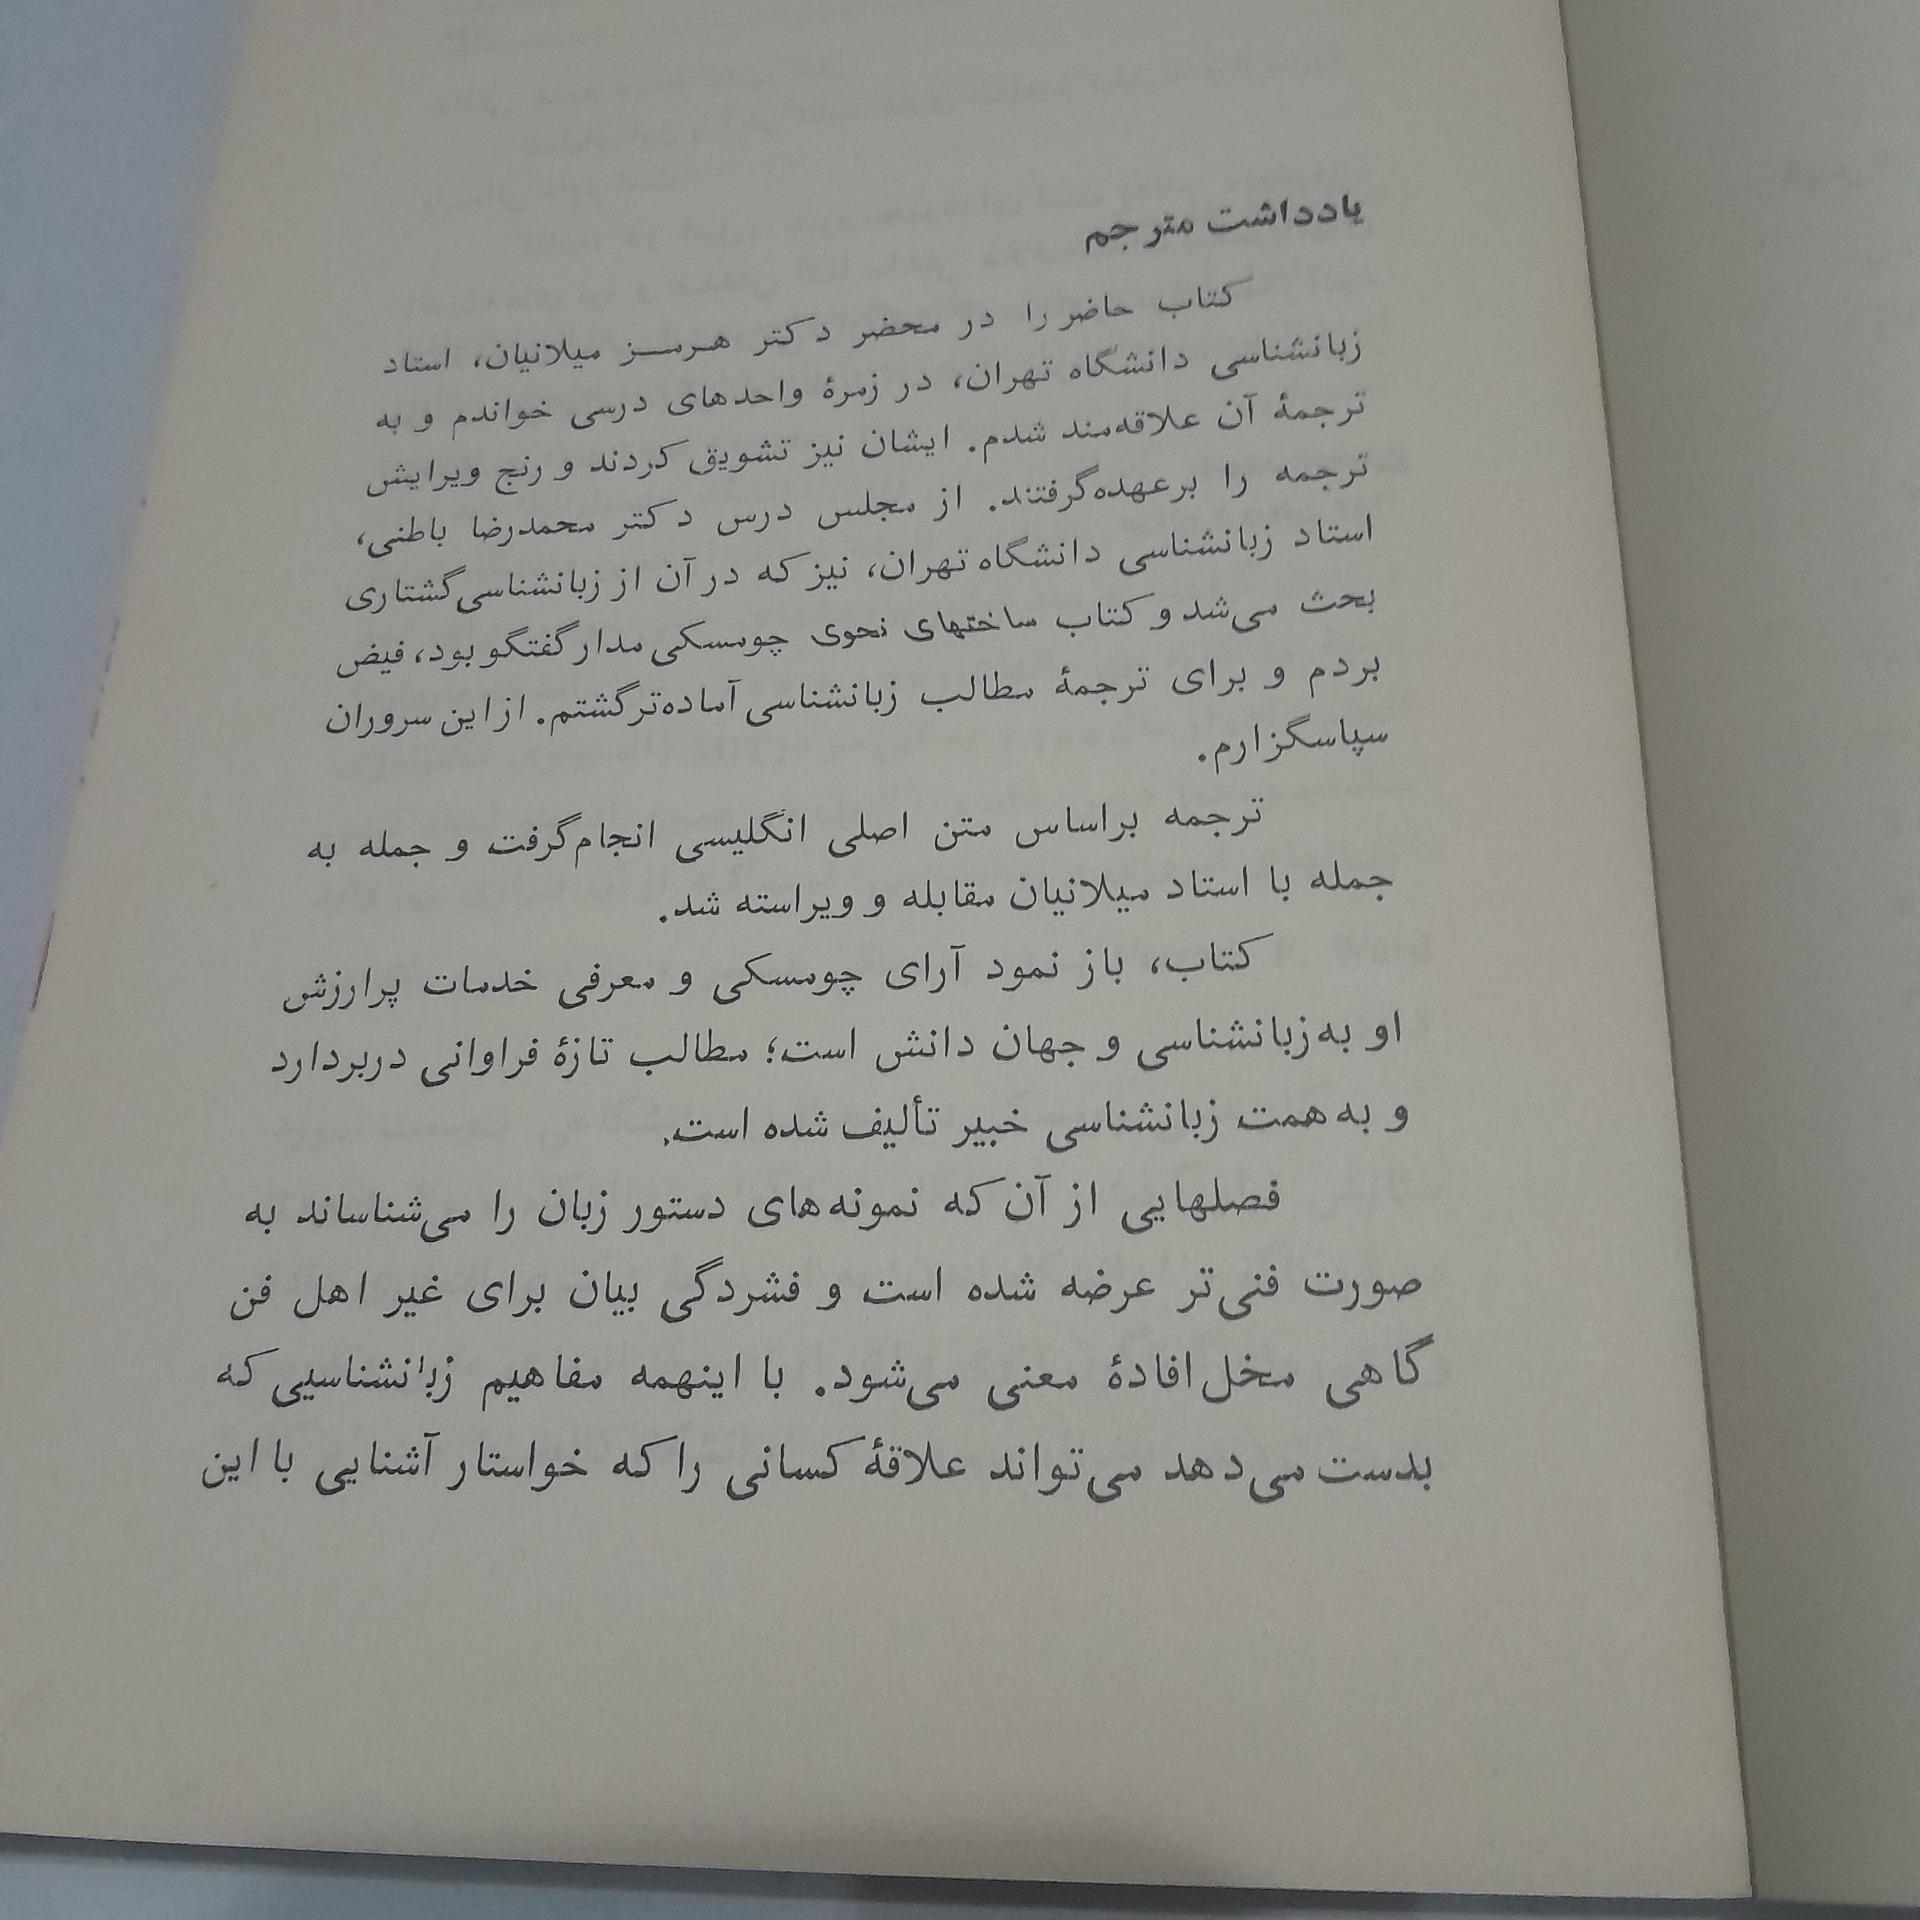 یادداشت مترجم
کتاب حاضر را در محضر دکتر هرمز میلانیان، استاد
زبانشناسی دانشگاه تهران، در زمرهٔ واحدهای درسی خواندم و به
ترجمهٔ آن علاقه‌مند شدم. ایشان نیز تشویق کردند و رنج ویرایش
ترجمه را برعهده‌گرفتند. از مجلس درس دکتر محمدرضا باطنی،
استاد زبانشناسی دانشگاه تهران، نیز که در آن از زبانشناسی گشتاری
بحث می‌شد و کتاب ساختهای نحوی چومسکی مدار گفتگو بود، فیض
بردم و برای ترجمهٔ مطالب زبانشناسی آماده‌تر گشتم. از این سروران
سپاسگزارم.
ترجمه براساس متن اصلی انگلیسی انجام گرفت و جمله به
جمله با استاد میلانیان مقابله و ویراسته شد.
کتاب، باز نمود آرای چومسکی و معرفی خدمات پرارزش
او به زبانشناسی و جهان دانش است؛ مطالب تازهٔ فراوانی دربردارد
و به همت زبانشناسی خبیر تألیف شده است.
فصلهایی از آن که نمونه‌های دستور زبان را می‌شناساند به
صورت فنی‌تر عرضه شده است و فشردگی بیان برای غیر اهل فن
گاهی مخل افادهٔ معنی می‌شود. با اینهمه مفاهیم زبانشناسیی که
بدست می‌دهد می‌تواند علاقهٔ کسانی را که خواستار آشنایی با این